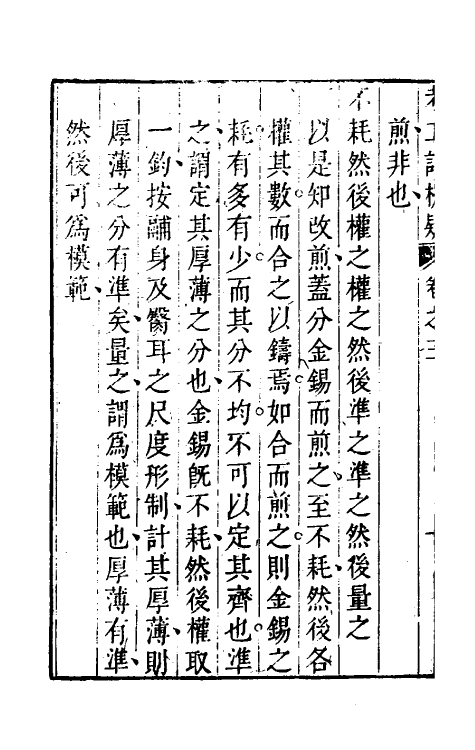 煎非也
不耗然後權之權之然後準之準之然後量之
以是知改煎蓋分金錫而煎之至不耗然後各
權其數而合之以鑄焉如合而煎之則金錫之
耗有多有少而其分不均不可以定其齊也準
之謂定其厚薄之分也金錫旣不耗然後權取
一鈞按鬴身及臋耳之尺度形制計其厚薄則
厚薄之分有準矣量之謂爲模範也厚薄有準
然後可爲模範